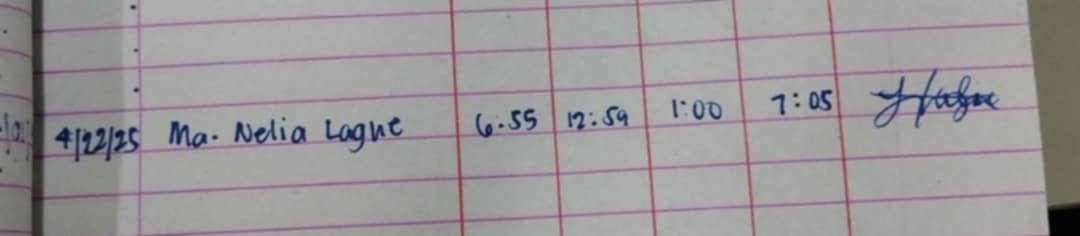 4/22/25 Ma. Nelia Lague 6:55 12:59 1:00 7:05